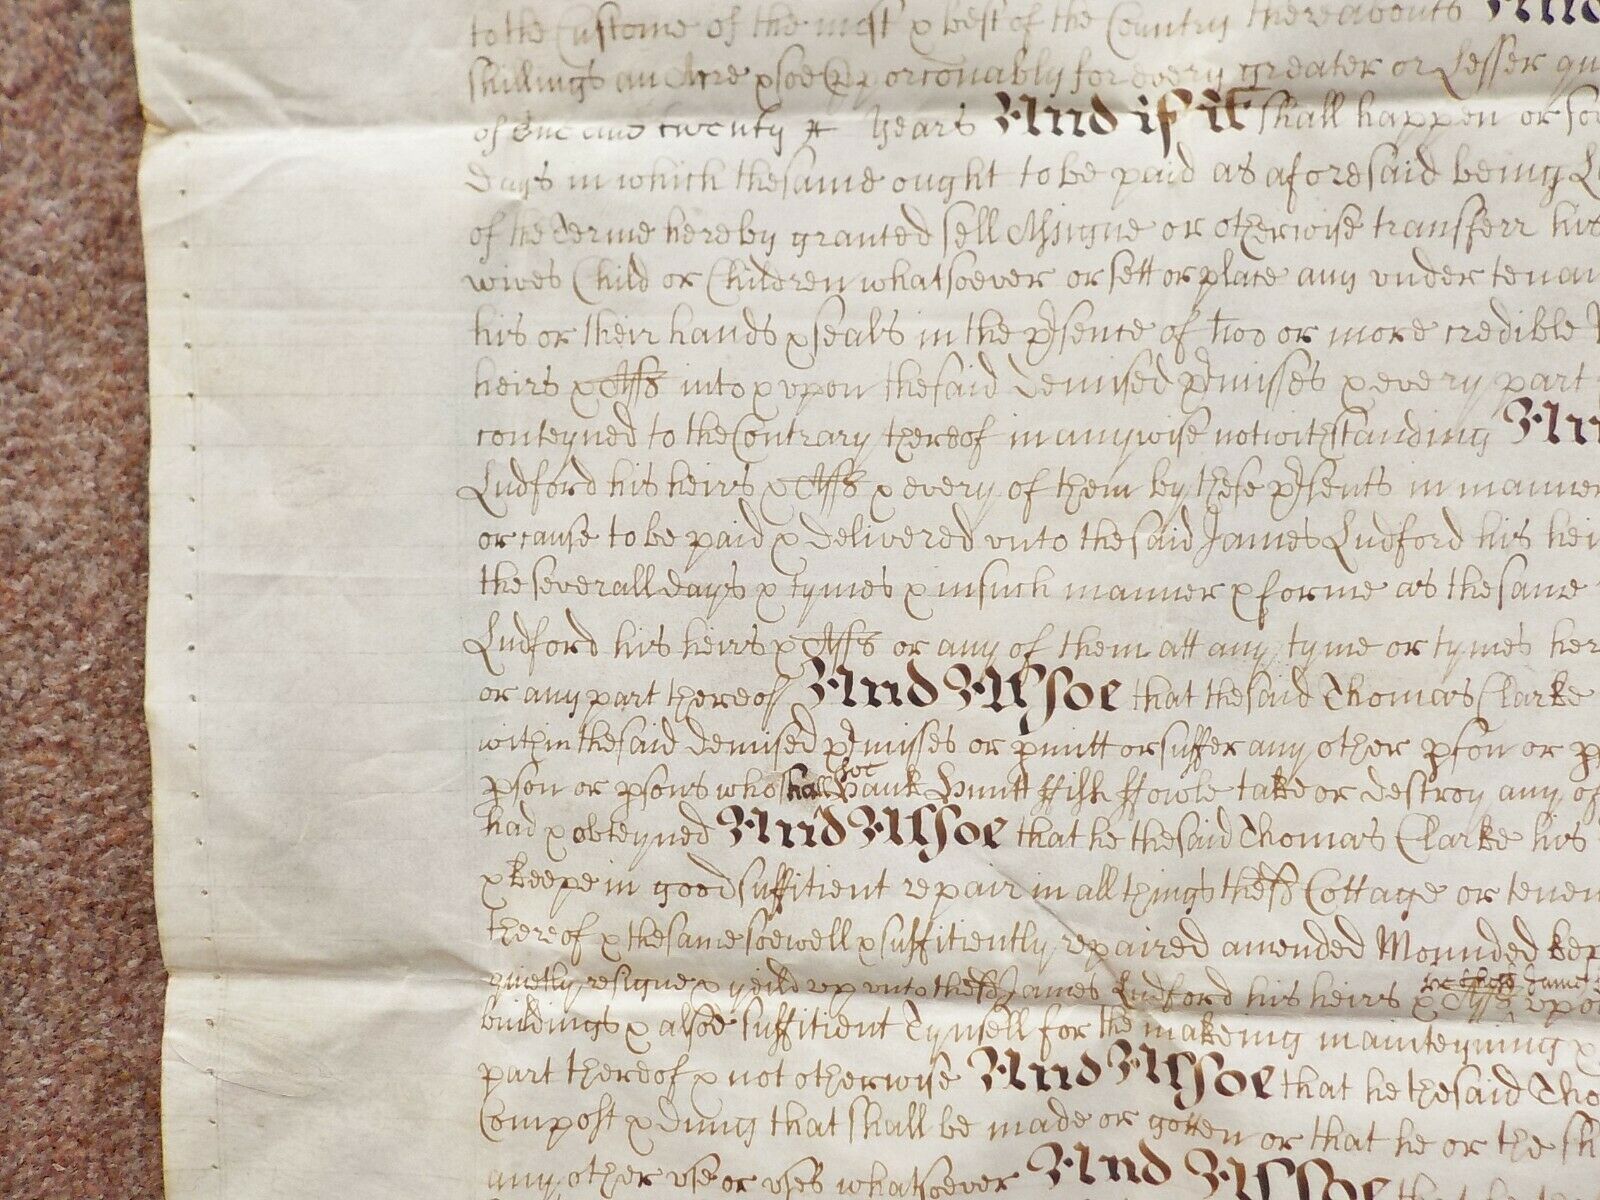 to the Custome of the most & best of the Country thereabouts And
shillings an Acre & soe pporconably for every greater or Lesser qu
of One and twenty years And if it shall happen or so
days in which the same ought to be paid as aforesaid being L
of the terme hereby granted sell Assigne or otherwise transferr his
wives Child or Children whatsoever or sett or place any vnder tenan
his or their hands & seals in the psence of two or more credible
heirs & Asss into & vpon the said demised pmisses & every part
conteyned to the Contrary thereof in anywise notwithstanding And
Ludford his heirs & Asss & every of them by these psents in manner
or cause to be paid & delivered vnto the said James Ludford his hei
the severall days & tymes & in such manner & forme as the same
Ludford his heirs & Asss or any of them att any tyme or tymes her
or any part thereof And Alsoe that the said Thomas Clarke
within the said demised pmisses or pmitt or suffer any other pson or p
pson or psons who shall Hauk Huntt ffish ffowle take or destroy any of
had & obteyned And Alsoe that he the said Thomas Clarke his
& keepe in good suffitient repair in all things the sd Cottage or tenem
thereof & the same soe well & suffitiently repaired amended Mounded kep
quietly resigne & yeild vp vnto the sd James Ludford his heirs & Asss vpo
buildings & alsoe suffitient Tynsell for the makeing mainteyning &
part thereof & not otherwise And Alsoe that he the said Tho
Compost & dung that shall be made or gotten or that he or the
any other vse or vses whatsoever And Alsoe that he